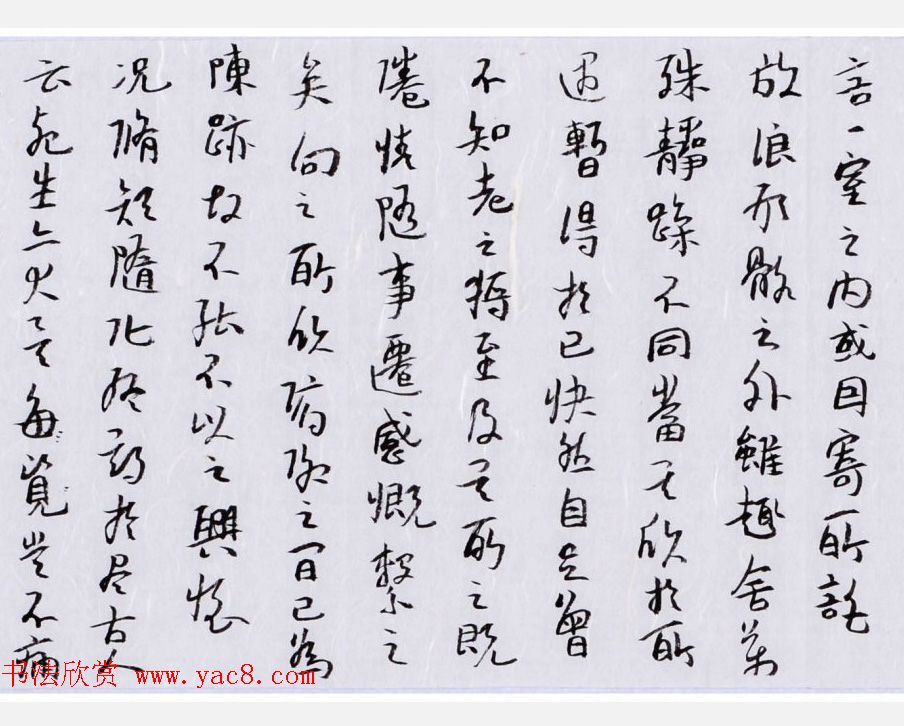 言一室之内或因寄所託
放浪形骸之外雖趣舍萬
殊靜躁不同當其欣於所
遇暫得於己快然自足曾
不知老之將至及其所之既
惓情隨事遷感慨繫之
矣向之所欣俯仰之間已為
陳跡故不能不以之興懷
况脩短隨化終期於尽古人
云死生亦大矣每覽豈不痛
书法欣赏 www.yac8.com